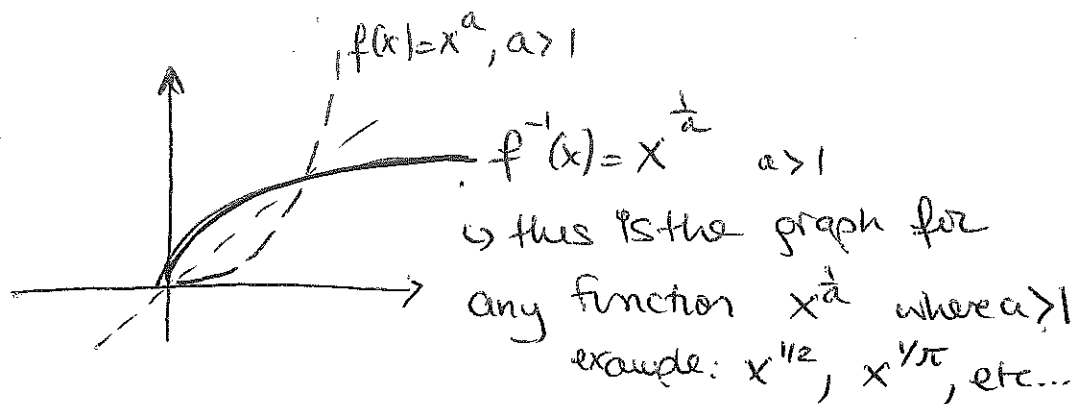 f(x)=x^a, a>1
f^{-1}(x) = x^{1/a} a>1
↪ this is the graph for
any function x^{1/a} where a>1
example: x^{1/2}, x^{1/π}, etc...